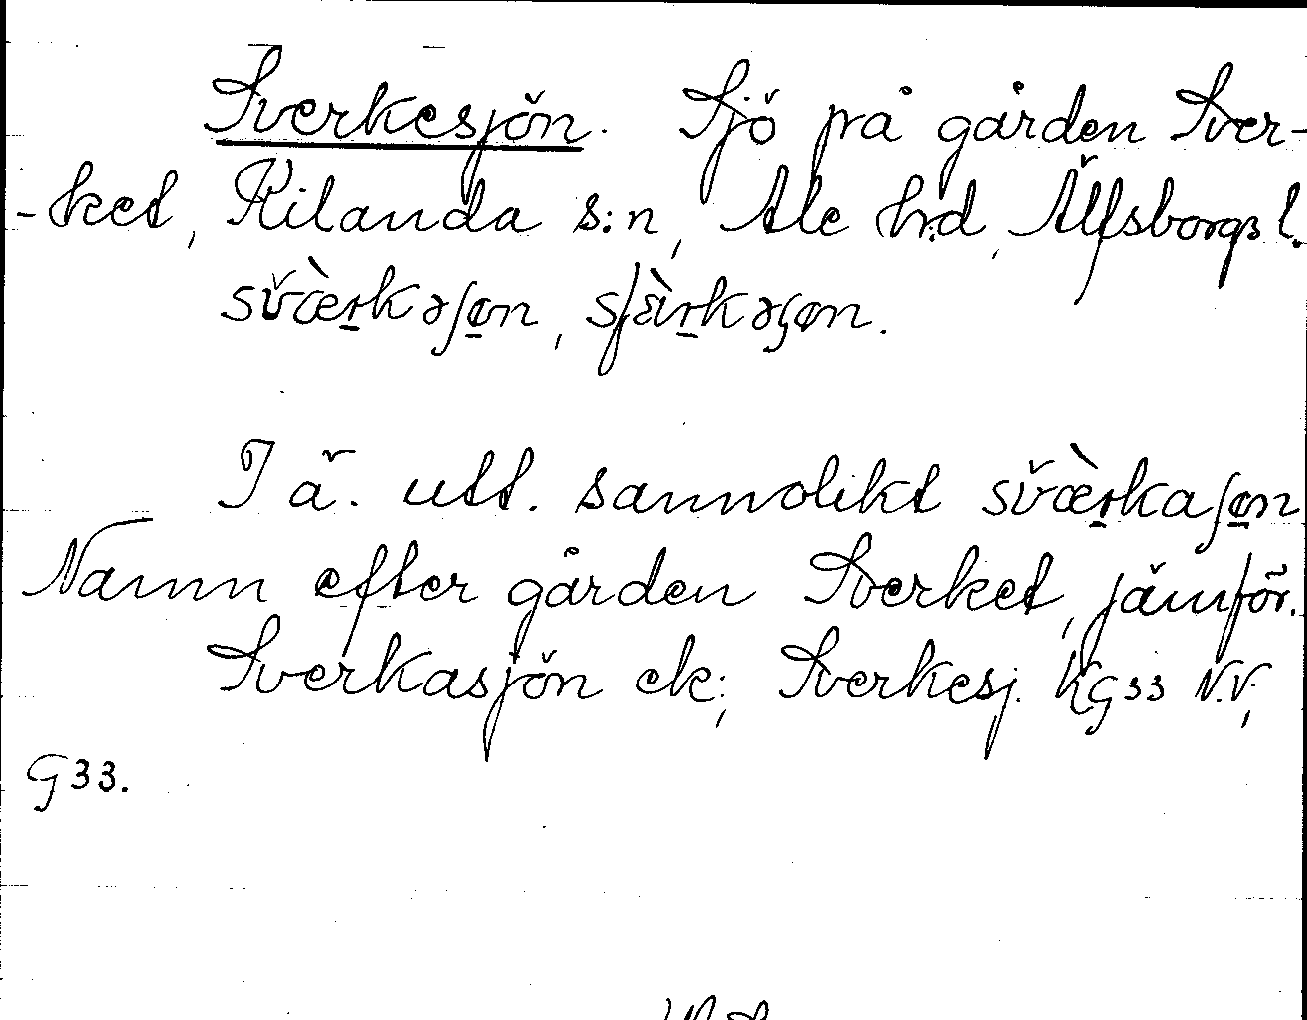 Sverkesjön. Sjö på gården Sver-
-ket, Kilanda s:n, Ale h:d, Älfsborgs l.
svæ̀rkəʃøn, sʃæ̀rkəʃøn.
I ä. utt. sannolikt svæ̀rkaʃøn
Namn efter gården Sverket, jämför.
Sverkasjön ek; Sverkesj. KG33 N.V;
G33.